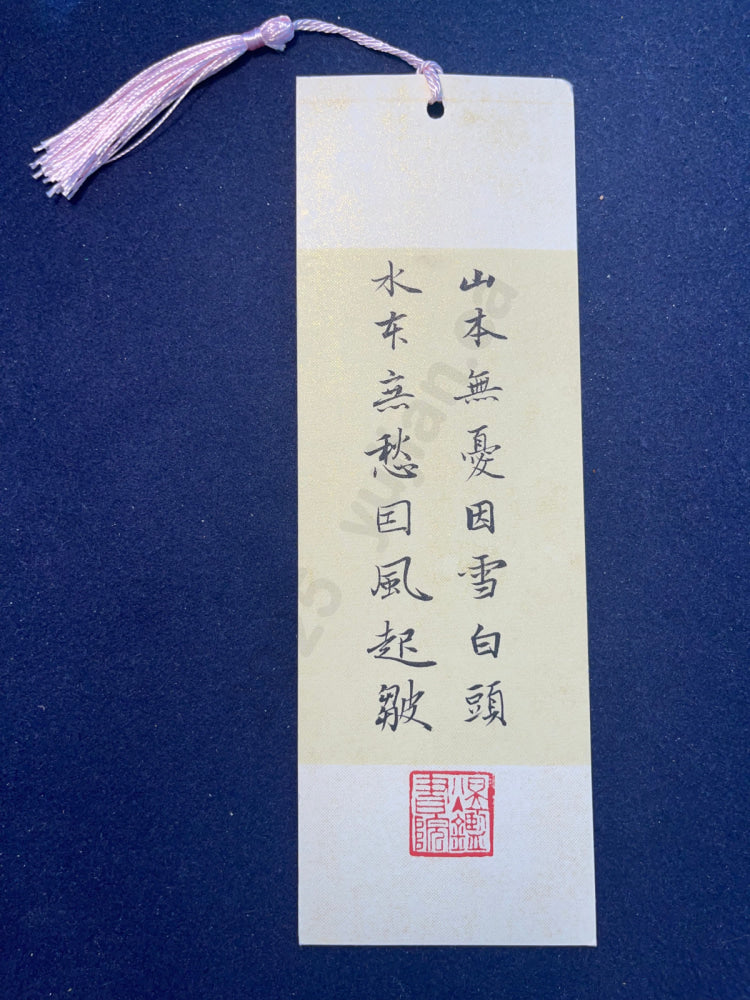 山本無憂因雪白頭
水本無愁因風起皺
書院